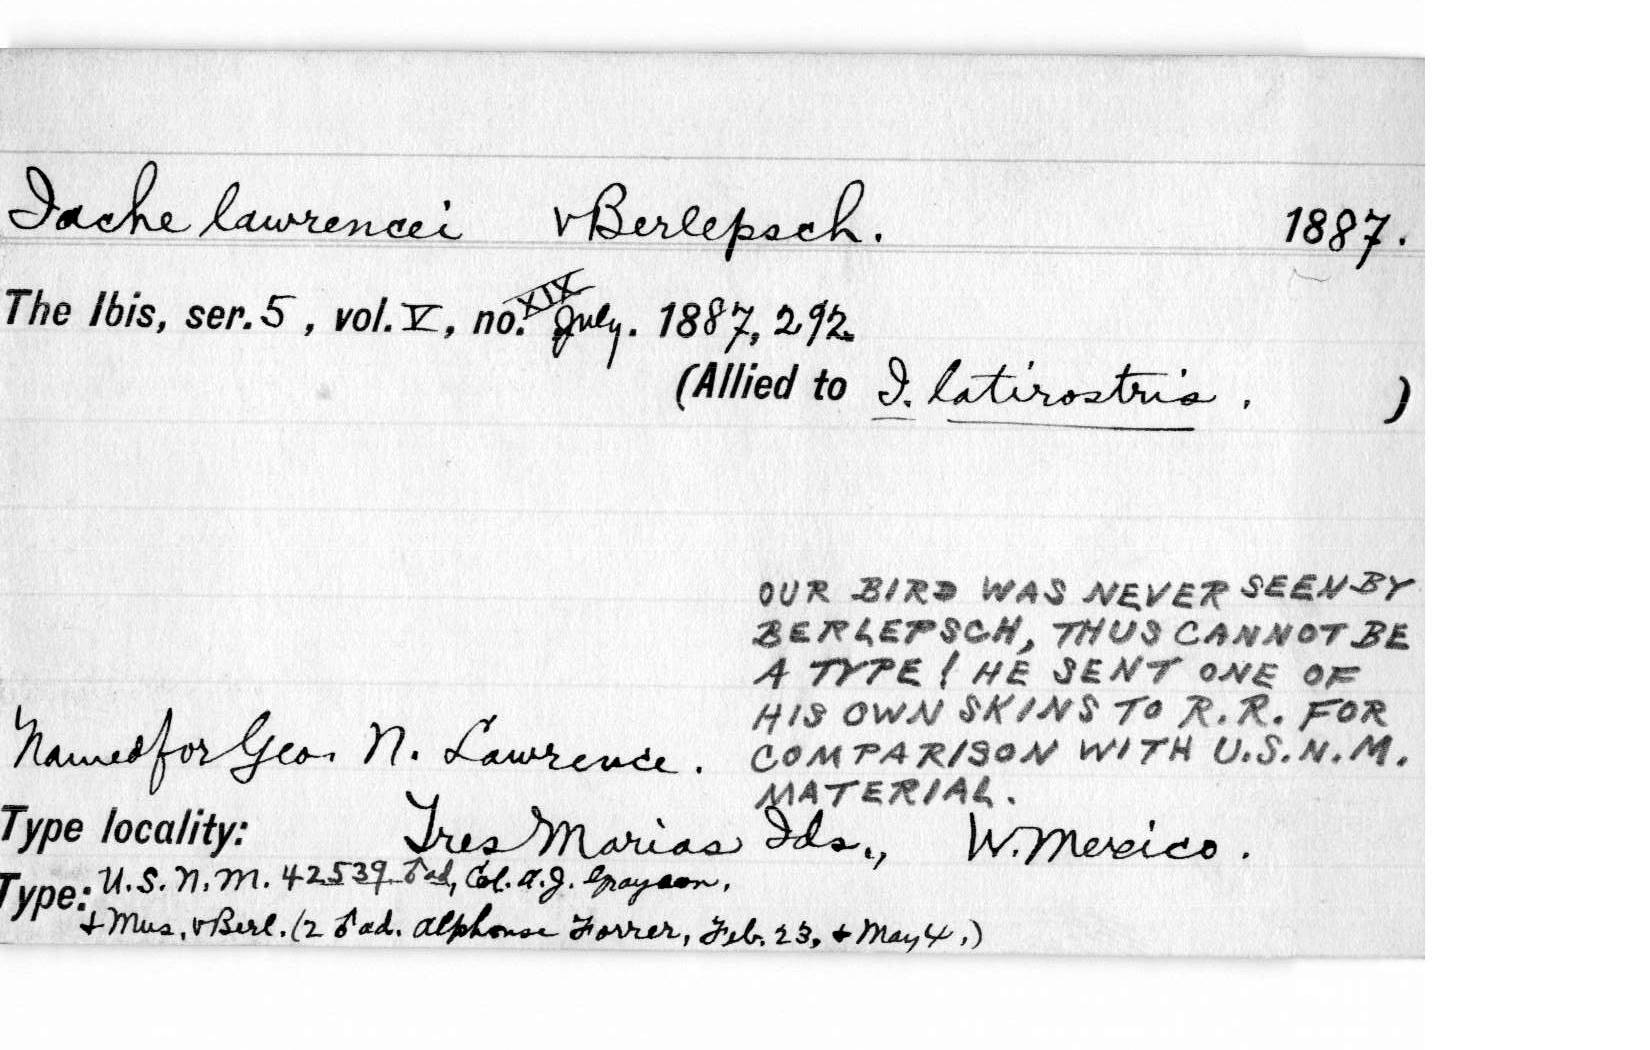 Iache lawrencei vBerlepsch. 1887.
The Ibis, ser. 5, vol. V, no. XIX July. 1887, 292.
(Allied to I. latirostris. )
OUR BIRD WAS NEVER SEEN BY
BERLEPSCH, THUS CANNOT BE
A TYPE! HE SENT ONE OF
HIS OWN SKINS TO R.R. FOR
COMPARISON WITH U.S.N.M.
MATERIAL.
Named for Geo. N. Lawrence.
Type locality: Tres Marias Ids., W. Mexico.
Type: U.S.N.M. 42539 ♂ ad, Col. A.J. Grayson.
+ Mus. vBerl. (2 ♂ ad. Alphonse Forrer, Feb. 23, + May 4.)